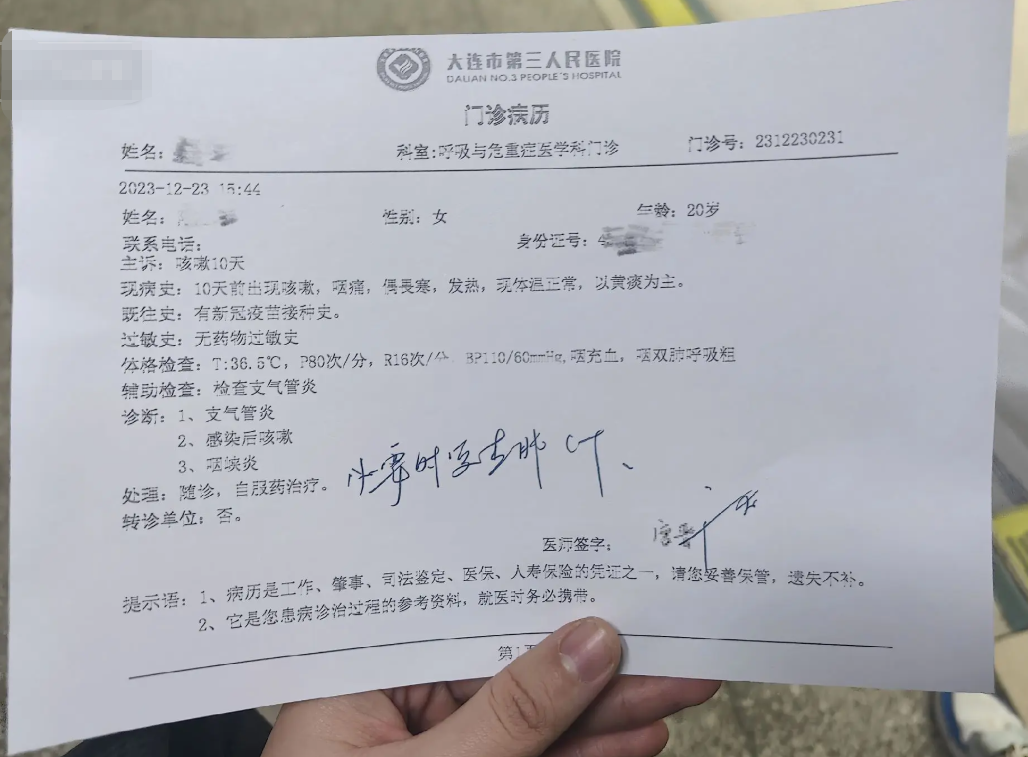 大连市第三人民医院
DALIAN NO.3 PEOPLE'S HOSPITAL
门诊病历
姓名: 科室:呼吸与危重症医学科门诊 门诊号: 2312230231
2023-12-23 15:44
姓名: 性别: 女 年龄: 20岁
联系电话: 身份证号: 4
主诉: 咳嗽10天
现病史: 10天前出现咳嗽, 咽痛, 偶畏寒, 发热, 现体温正常, 以黄痰为主。
既往史: 有新冠疫苗接种史。
过敏史: 无药物过敏史
体格检查: T:36.5℃, P80次/分, R16次/分, BP110/60mmHg,咽充血, 咽双肺呼吸粗
辅助检查: 检查支气管炎
诊断: 1、支气管炎
2、感染后咳嗽
3、咽喉炎
必要时复查肺CT、
处理: 随诊, 自服药治疗。
转诊单位: 否。
医师签字:
提示语: 1、病历是工作、肇事、司法鉴定、医保、人寿保险的凭证之一, 请您妥善保管, 遗失不补。
2、它是您患病诊治过程的参考资料, 就医时务必携带。
第1